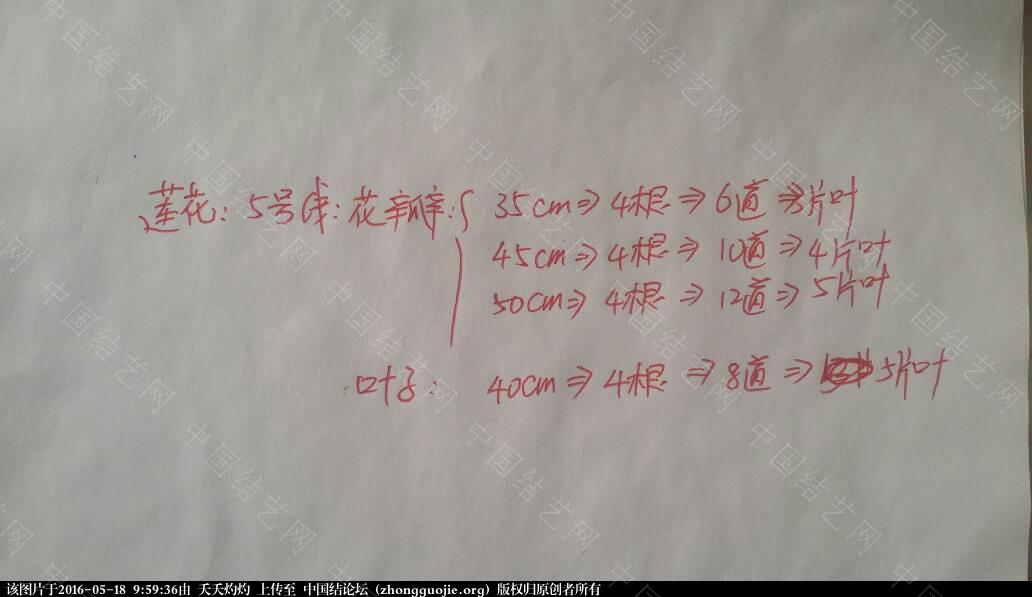 莲花: 5号线: 花瓣: { 35cm⇒4根⇒6道⇒3片叶
45cm⇒4根⇒10道⇒4片叶
50cm⇒4根⇒12道⇒5片叶
叶子: 40cm⇒4根⇒8道⇒5片叶
中国结艺网
该图片于2016-05-18 9:59:36由 夭夭灼灼 上传至 中国结论坛 (zhongguojie.org) 版权归原创者所有